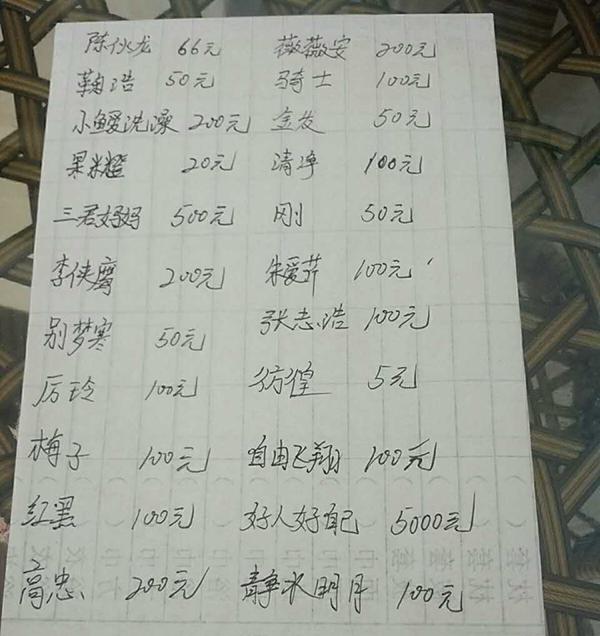 陈伙龙 66元 薇薇安 200元
鞠浩 50元 骑士 100元
小鳗洗澡 200元 金发 50元
果米橙 20元 清净 100元
三君妈妈 500元 刚 50元
李侠 200元 朱爱芹 100元
别梦寒 50元 张志浩 100元
厉玲 100元 彷徨 5元
梅子 100元 自由飞翔 100元
红墨 100元 好人好自己 5000元
高忠 200元 静水明月 100元